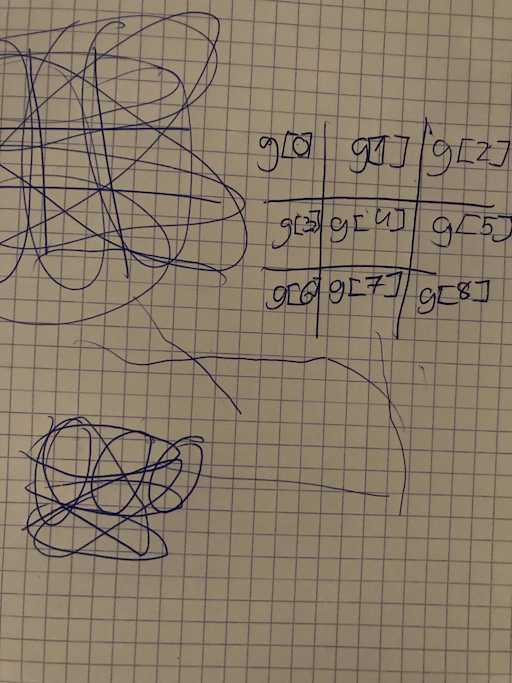 g[0] g[1] g[2]
g[3] g[4] g[5]
g[6] g[7] g[8]